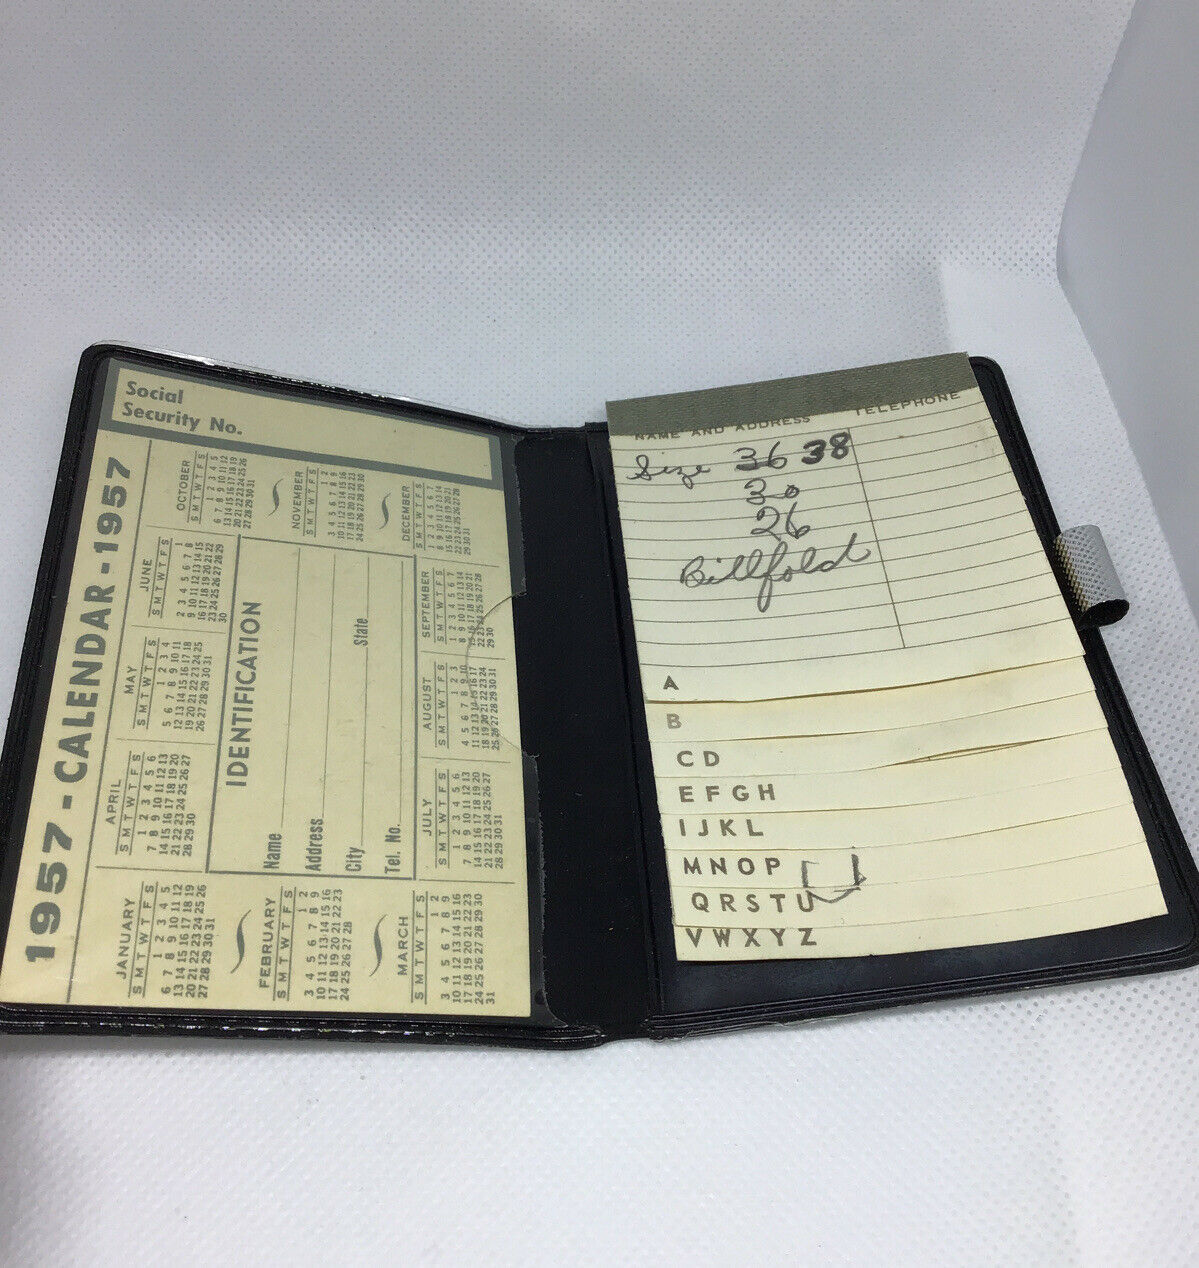 Social
Security No.
1957 - CALENDAR - 1957
JANUARY
S M T W T F S
1 2 3 4 5
6 7 8 9 10 11 12
13 14 15 16 17 18 19
20 21 22 23 24 25 26
27 28 29 30 31
FEBRUARY
S M T W T F S
1 2
3 4 5 6 7 8 9
10 11 12 13 14 15 16
17 18 19 20 21 22 23
24 25 26 27 28
MARCH
S M T W T F S
1 2
3 4 5 6 7 8 9
10 11 12 13 14 15 16
17 18 19 20 21 22 23
24 25 26 27 28 29 30
31
APRIL
S M T W T F S
1 2 3 4 5 6
7 8 9 10 11 12 13
14 15 16 17 18 19 20
21 22 23 24 25 26 27
28 29 30
MAY
S M T W T F S
1 2 3 4
5 6 7 8 9 10 11
12 13 14 15 16 17 18
19 20 21 22 23 24 25
26 27 28 29 30 31
JUNE
S M T W T F S
1
2 3 4 5 6 7 8
9 10 11 12 13 14 15
16 17 18 19 20 21 22
23 24 25 26 27 28 29
30
JULY
S M T W T F S
1 2 3 4 5 6
7 8 9 10 11 12 13
14 15 16 17 18 19 20
21 22 23 24 25 26 27
28 29 30 31
AUGUST
S M T W T F S
1 2 3
4 5 6 7 8 9 10
11 12 13 14 15 16 17
18 19 20 21 22 23 24
25 26 27 28 29 30 31
SEPTEMBER
S M T W T F S
1 2 3 4 5 6 7
8 9 10 11 12 13 14
15 16 17 18 19 20 21
22 23 24 25 26 27 28
29 30
OCTOBER
S M T W T F S
1 2 3 4 5
6 7 8 9 10 11 12
13 14 15 16 17 18 19
20 21 22 23 24 25 26
27 28 29 30 31
NOVEMBER
S M T W T F S
1 2
3 4 5 6 7 8 9
10 11 12 13 14 15 16
17 18 19 20 21 22 23
24 25 26 27 28 29 30
DECEMBER
S M T W T F S
1 2 3 4 5 6 7
8 9 10 11 12 13 14
15 16 17 18 19 20 21
22 23 24 25 26 27 28
29 30 31
IDENTIFICATION
Name
Address
City State
Tel. No.
NAME AND ADDRESS TELEPHONE
Size 36 38
30
26
Billfold
A
B
C D
E F G H
I J K L
M N O P
Q R S T U
V W X Y Z